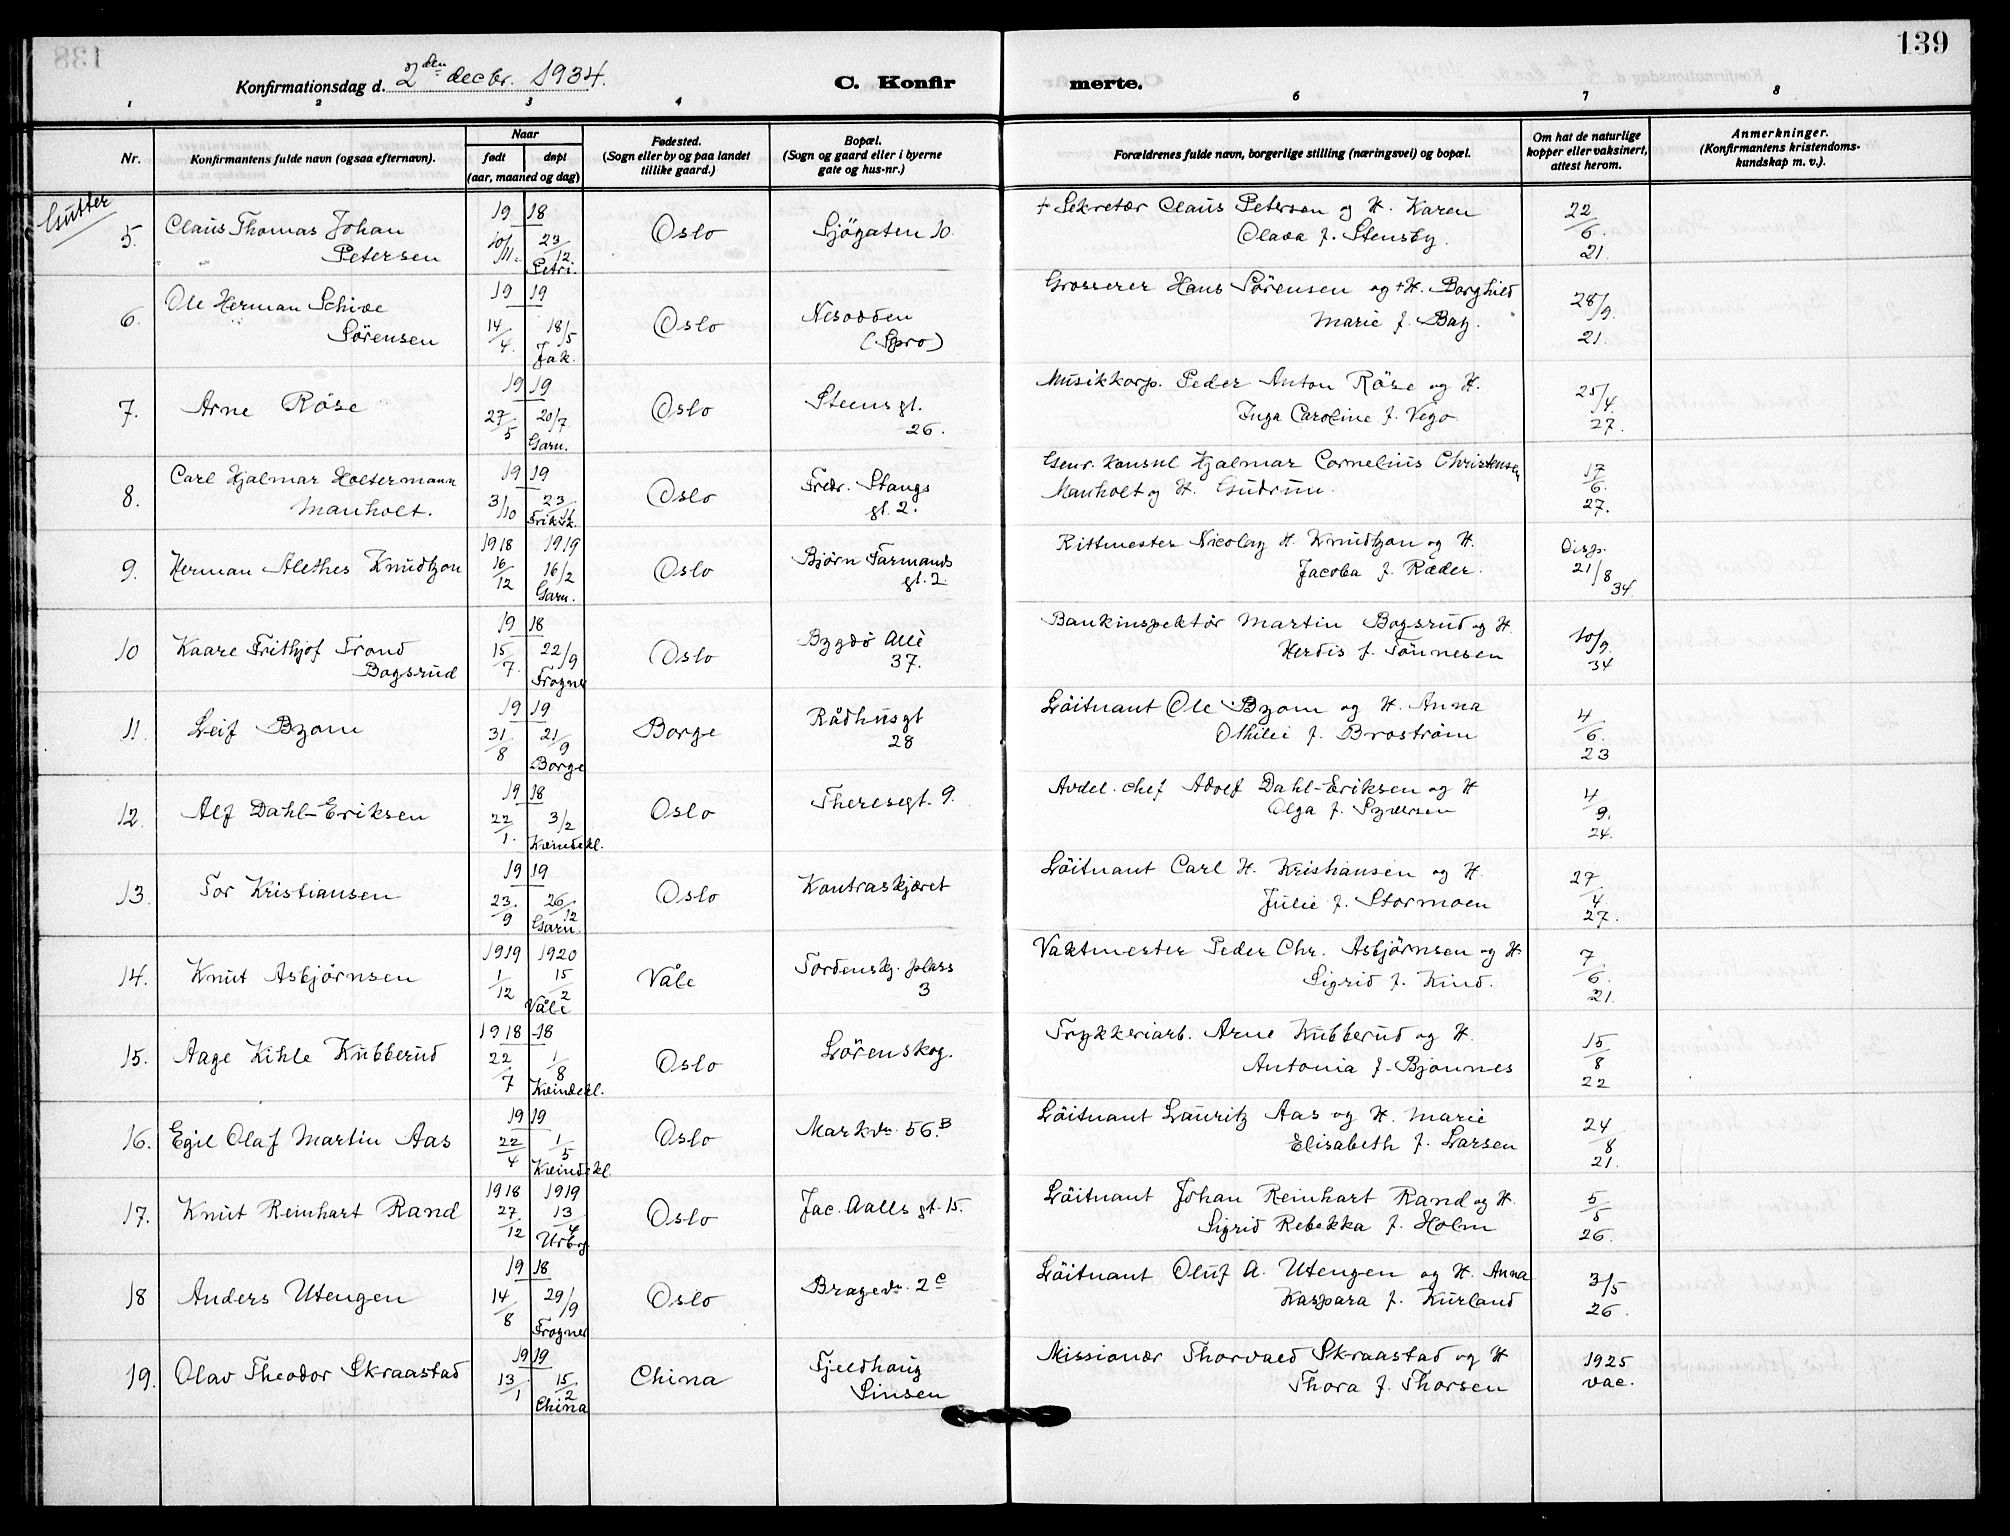 139
Konfirmationsdag d. 2den decbr. 1934.
C. Konfir
merte.
1 2 3 4 6 7 8
Nr.
Konfirmantens fulde navn (ogsaa efternavn).
Naar
født
døpt
(aar, maaned og dag)
Fødested.
(Sogn eller by og paa landet
tillike gaard.)
Bopæl.
(Sogn og gaard eller i byerne
gate og hus-nr.)
Forældrenes fulde navn, borgerlige stilling (næringsvei) og bopæl.
Om hat de naturlige
kopper eller vaksinert,
attest herom.
Anmerkninger.
(Konfirmantens kristendoms-
kundskap m. v.).
Gutter
5. Claus Thomas Johan
Petersen
19 18
10/11. 23/12 Petri.
Oslo
Sjøgaten 10.
+ Sekretær Claus Petersen og H. Karen
Olava f. Stensby.
22/6. 21.
6. Ole Herman Schive
Sørensen
19 19
14/4. 18/5 Jak.
Oslo
Nesodden
(Spro)
Grosserer Hans Sørensen og +H. Borghild
Marie f. Bay.
28/9. 21.
7. Arne Röse
19 19
27/5 20/7 Garn.
Oslo
Steensgt.
26.
Musikkorp. Peder Anton Röse og H.
Inga Caroline f. Vego
25/4. 27.
8. Carl Hjalmar Holtermann
Manholt.
19 19
31/10 23/11 Frikirk.
Oslo
Fredr. Stangs
gt. 2.
Genr. Konsul Hjalmar Cornelius Christensen
Manholt og H. Gudrun.
17/6. 27.
9. Herman Alethes Knudtzon
1918 1919
16/12 16/2 Garn.
Oslo
Bjørn Farmands
gt. 2.
Rittmester Nicolay H. Knudtzon og H.
Jacoba f. Ræder.
Disp. 21/8 34
10 Kaare Frithjof Trond
Bogsrud
19 18
15/7. 22/9 Frogner
Oslo
Bygdö Allé
37.
Bankinspektör Martin Bogsrud og H.
Herdis f. Tönnesen
10/9. 34
11. Leif Byom
19 19
31/8 21/9 Borge
Borge
Rådhusgt
28
Löitnant Ole Byom og H. Anna
Othilie f. Broström
4/6. 23
12. Alf Dahl-Eriksen
19 18
22/1. 3/2 Kvindekl.
Oslo
Theresegt. 9.
Avdel. chef Adolf Dahl-Eriksen og H
Olga f. Syversen
4/9. 24.
13. Tor Kristiansen
19 19
23./9 26/12 Garn.
Oslo
Kontraskjæret
Löitnant Carl H. Kristiansen og H.
Julie f. Stormoen
27/4 27.
14. Knut Asbjørnsen
1919 1920
1/12 15/2 Våle
Våle
Tordenskj. plass
3
Vaktmester Peder Chr. Asbjørnsen og H.
Sigrid f. Kind.
7/6. 21.
15. Aage Kihle Kubberud
1918 18
22/7 1/8 Kvindekl.
Oslo
Lørenskog.
Trykkeriarb. Arne Kubberud og H.
Antonia f. Bjonnes
15/8 22
16. Egil Olaf Martin Aas
19 19
22/4 1/5 Kvindekl.
Oslo
Markvn. 56.B
Löitnant Lauritz Aas og H. Marie
Elisabeth f. Larsen
24/8 21.
17. Knut Reinhart Rand
1918 1919
27/12 13/4 Urbg
Oslo
Jac. Aalls gt. 15.
Löitnant Johan Reinhart Rand og H.
Sigrid Rebekka f. Holm
5/8 26.
18 Anders Utengen
19 18
14/8 29/9 Frogner
Oslo
Bragevn. 2c
Löitnant Oluf A. Utengen og H. Anna
Kaspara f. Kurland
3/5 26.
19. Olav Theodor Skraastad
19 19
13/1 15/2 China
China
Fjeldhaug
Sinsen
Missionær Thorvald Skraastad og H
Thora f. Thorsen
1925
vac.